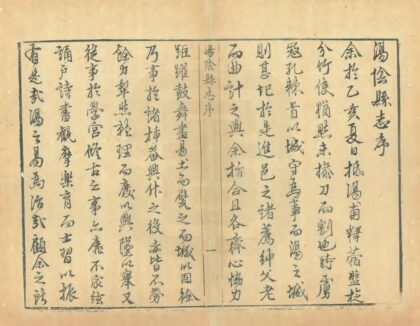 湯陰縣志序
余於乙亥夏日抵湯甫釋
分竹使猶照未操刀而割也時
寇孔棘首以城守為事而湯之城
則甚圮於是進邑之諸薦紳父老
而曲計之與余指合且各齊心協力
湯陰縣志序
一
距躍鼓舞盡易土而甓之而城以固徐
乃事於諸橋梁興作之役亦皆不勞
餘力犂然就理而廢以興墜以舉又
從事於學宮修古之事亦靡不家絃
誦戶詩書觀摩樂育而士習以振
有是哉湯之易為治哉顧余之